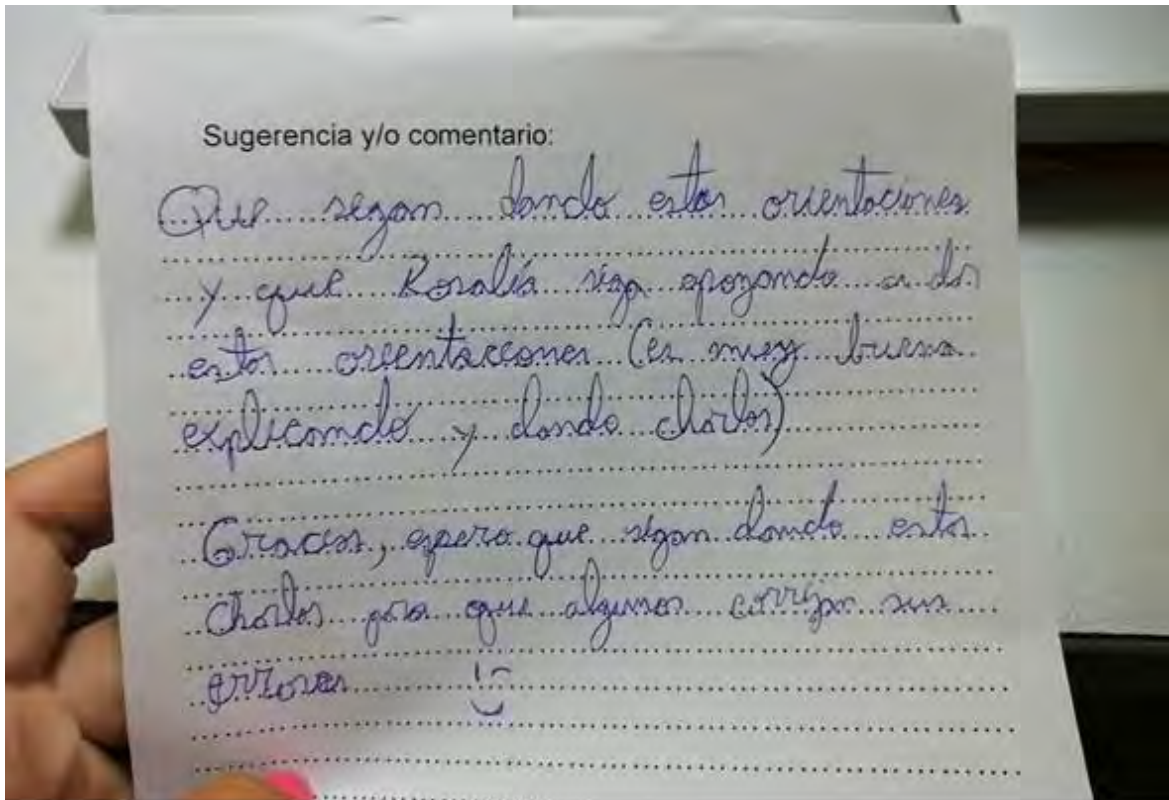 Sugerencia y/o comentario:
Que sigan dando estas orientaciones
y que Rosalía siga apoyando a dar
estas orientacciones (es muy buena
explicando y dando charlas)
Gracias, espero que sigan dando estas
charlas para que algunos corrijan sus
errores